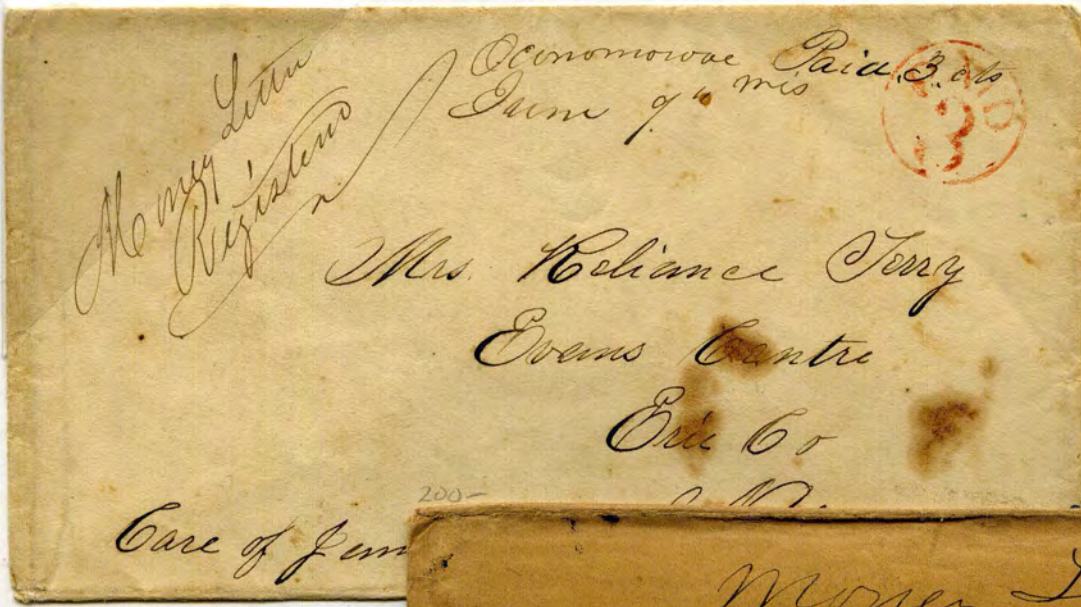 Money Letter
Registered
Oconomowoc Paid 3 cts
June 9th Wis
PAID
3
Mrs. Reliance Terry
Evans Centre
Erie Co
200-
Care of
Money